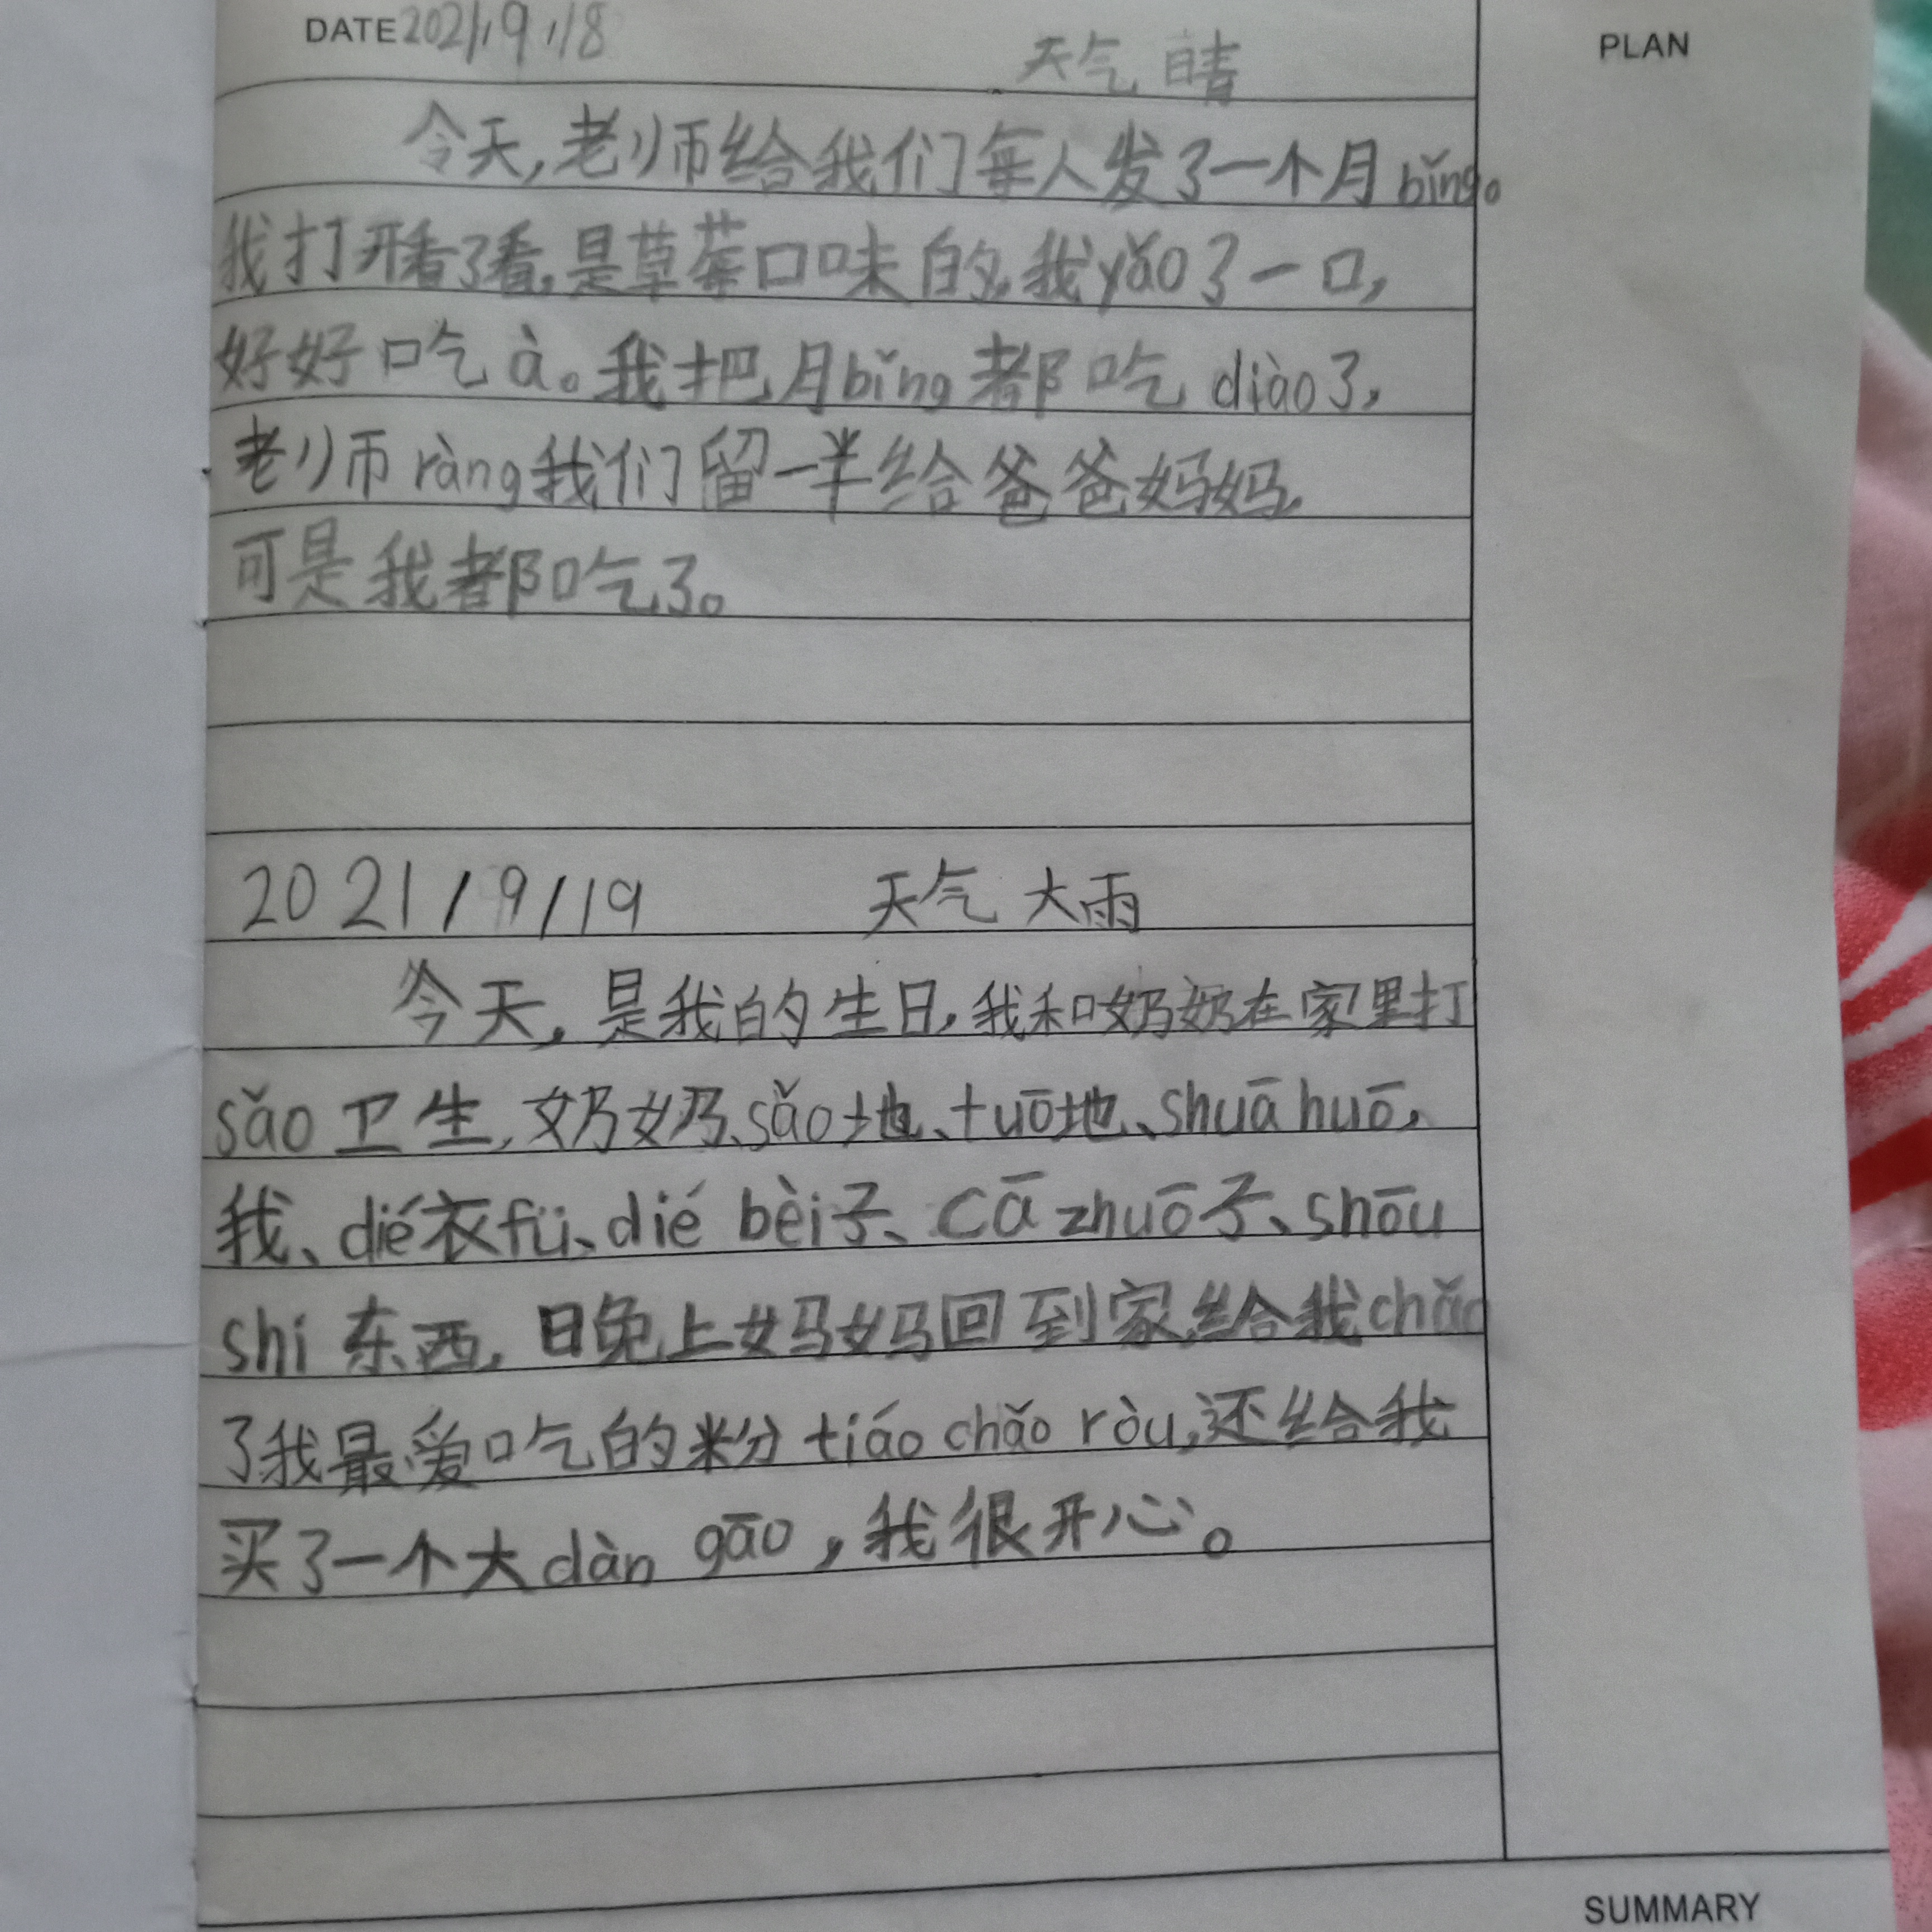 DATE 2021,9,18 天气 晴 PLAN
今天,老师给我们每人发了一个月bǐng。
我打开看了看,是草莓口味的,我yǎo了一口,
好好吃à。我把月bǐng都吃diào了,
老师ràng我们留一半给爸爸妈妈,
可是我都吃了。
2021/9/19 天气 大雨
今天,是我的生日,我和奶奶在家里打
sǎo卫生,奶奶、sǎo地、tuō地、shuā huō,
我、dié衣fu、dié bèi子、cā zhuō子、shōu
shi 东西,晚上妈妈回到家,给我chǎo
了我最爱吃的粉tiáo chǎo ròu,还给我
买了一个大dàn gāo,我很开心。
SUMMARY